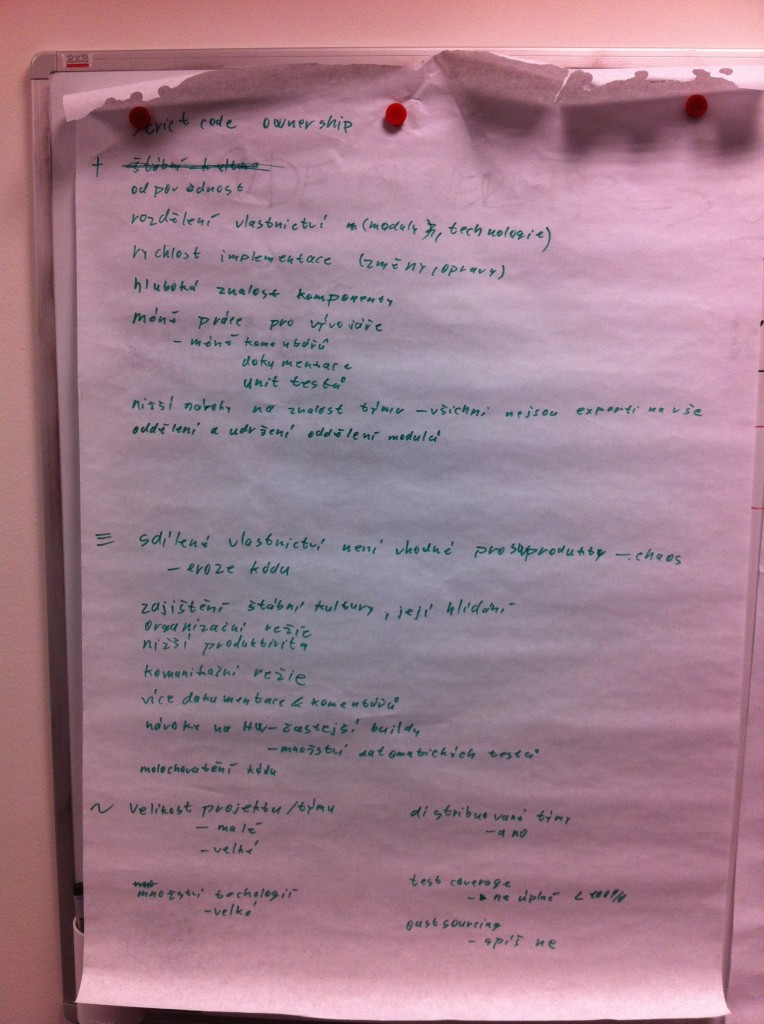 2x3
Strict code ownership
+ štábní kultura
odpovědnost
rozdělení vlastnictví (moduly, technologie)
rychlost implementace (změny, opravy)
hluboká znalost komponenty
méně práce pro vývojáře
- méně komentářů
dokumentace
unit testů
nižší nároky na znalost týmu - všichni nejsou experti na vše
oddělení a udržení oddělení modulů
≡ sdílené vlastnictví není vhodné pro produkty - chaos
- eroze kódu
zajištění štábní kultury, její hlídání
organizační režie
nižší produktivita
komunikační režie
více dokumentace & komentářů
nároky na HW - častejší buildy
- množství automatických testů
molochovatění kódu
~ velikost projektu/týmu
- malé
- velké
množství techologií
- velké
distribuované týmy
- ano
test coverage
- na úplné < 100%
outsourcing
- spíš ne